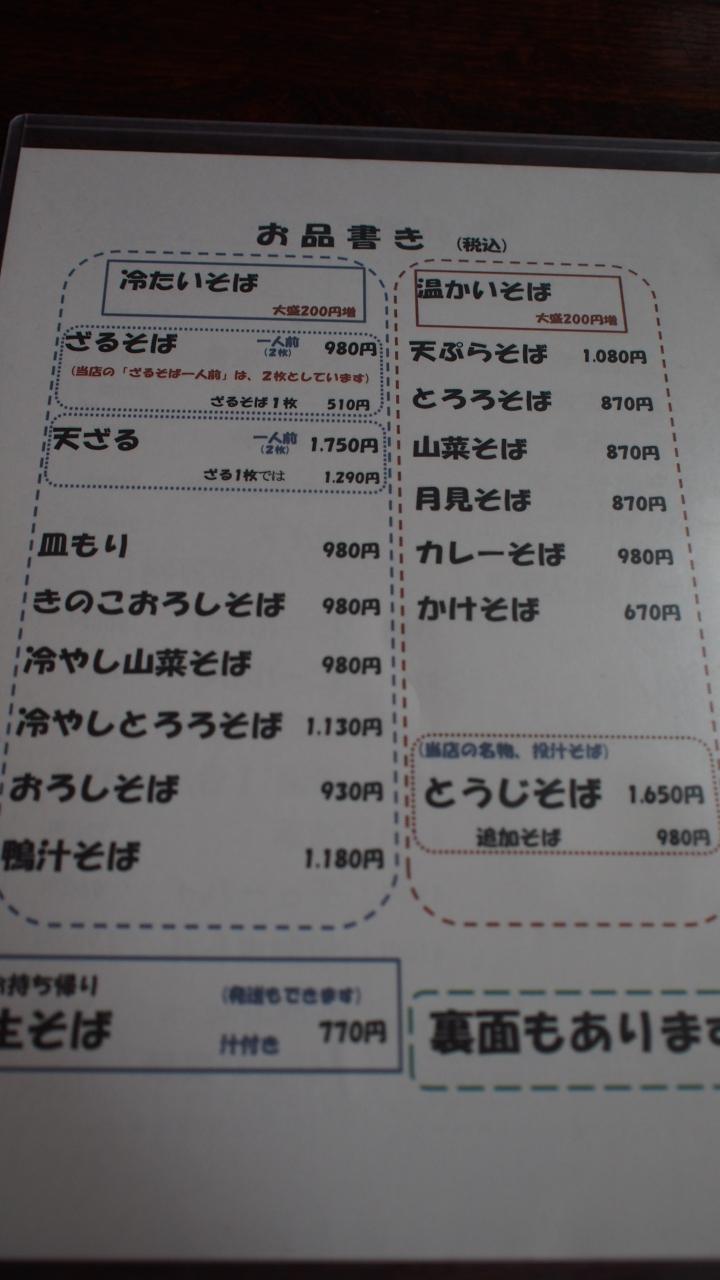 お品書き (税込)
冷たいそば
大盛200円増
ざるそば 一人前(2枚) 980円
(当店の「ざるそば一人前」は、2枚としています)
ざるそば1枚 510円
天ざる 一人前(2枚) 1.750円
ざる1枚では 1.290円
皿もり 980円
きのこおろしそば 980円
冷やし山菜そば 980円
冷やしとろろそば 1.130円
おろしそば 930円
鴨汁そば 1.180円
温かいそば
大盛200円増
天ぷらそば 1.080円
とろろそば 870円
山菜そば 870円
月見そば 870円
カレーそば 980円
かけそば 670円
(当店の名物、投汁そば)
とうじそば 1.650円
追加そば 980円
お持ち帰り (発送もできます)
生そば 汁付き 770円
裏面もあります